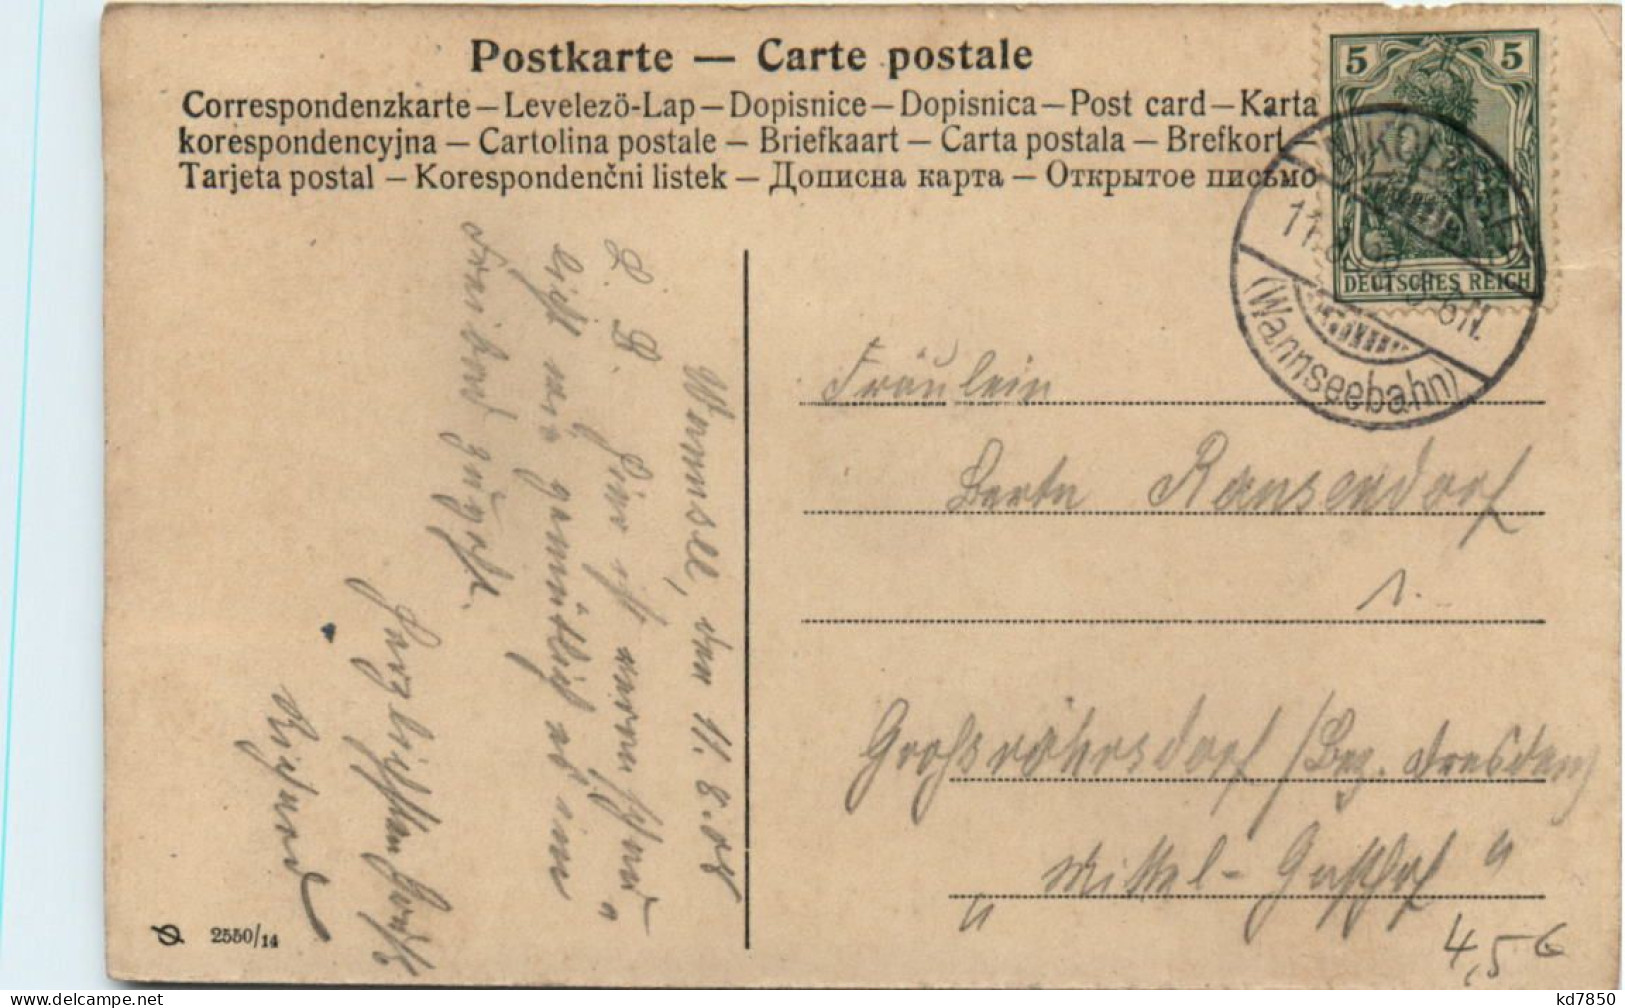 Postkarte — Carte postale
Correspondenzkarte — Levelezö-Lap — Dopisnice — Dopisnica — Post card — Karta
korespondencyjna — Cartolina postale — Briefkaart — Carta postala — Brefkort —
Tarjeta postal — Korespondenčni listek — Дописна карта — Открытое письмо
5 5
DEUTSCHES REICH
NIKOL
11.8. 5-6N.
(Wannseebahn)
Wannsee, den 11.8.08
L. B.
ist
Freibad
Herzlichsten Gruß
Richard
Fräulein
Berta Ransendorf
1.
Großröhrsdorf (Bez. Dresden)
„Mittel-Gasthof“
2550/14
4,5 €
kd7850